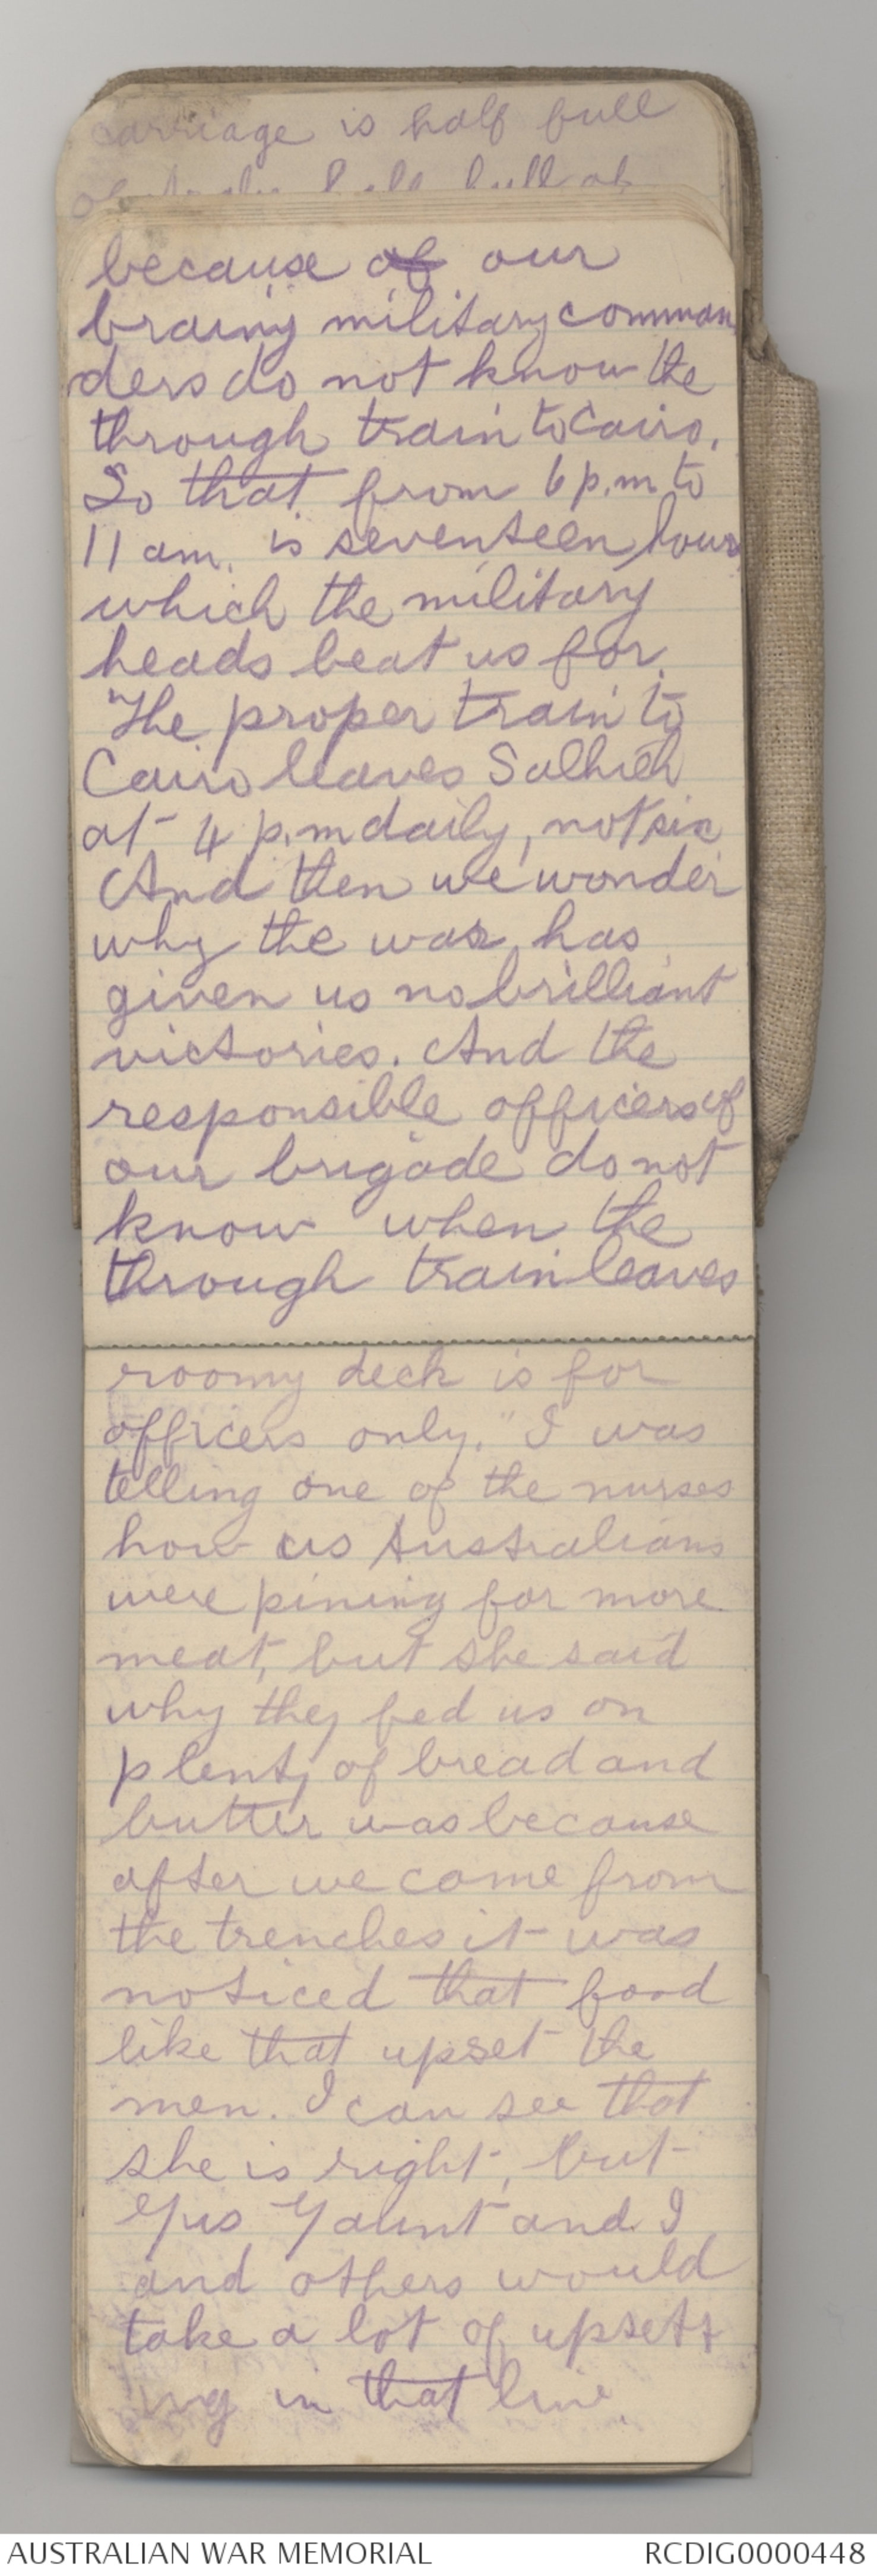 carriage is half full
because of our
brainy military comman
ders do not know the
through train to Cairo.
So that from 6 p.m to
11 am. is seventeen hours
which the military
heads beat us for.
The proper train to
Cairo leaves Salhieh
at 4 p.m daily, not six
And then we wonder
why the war has
given us no brilliant
victories. And the
responsible officers of
our brigade do not
know when the
through train leaves
roomy deck is for
officers only." I was
telling one of the nurses
how us Australians
were pining for more
meat, but she said
why they fed us on
plenty of bread and
butter was because
after we come from
the trenches it was
noticed that food
like that upset the
men. I can see that
she is right, but
Gus Gaunt and I
and others would
take a lot of upsett
ing in that line.
AUSTRALIAN WAR MEMORIAL
RCDIG0000448